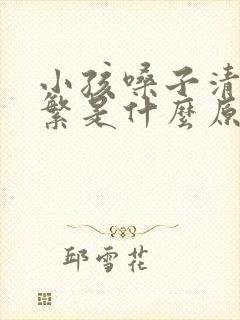 小孩嗓子清
繁是什麼原
邱雪花